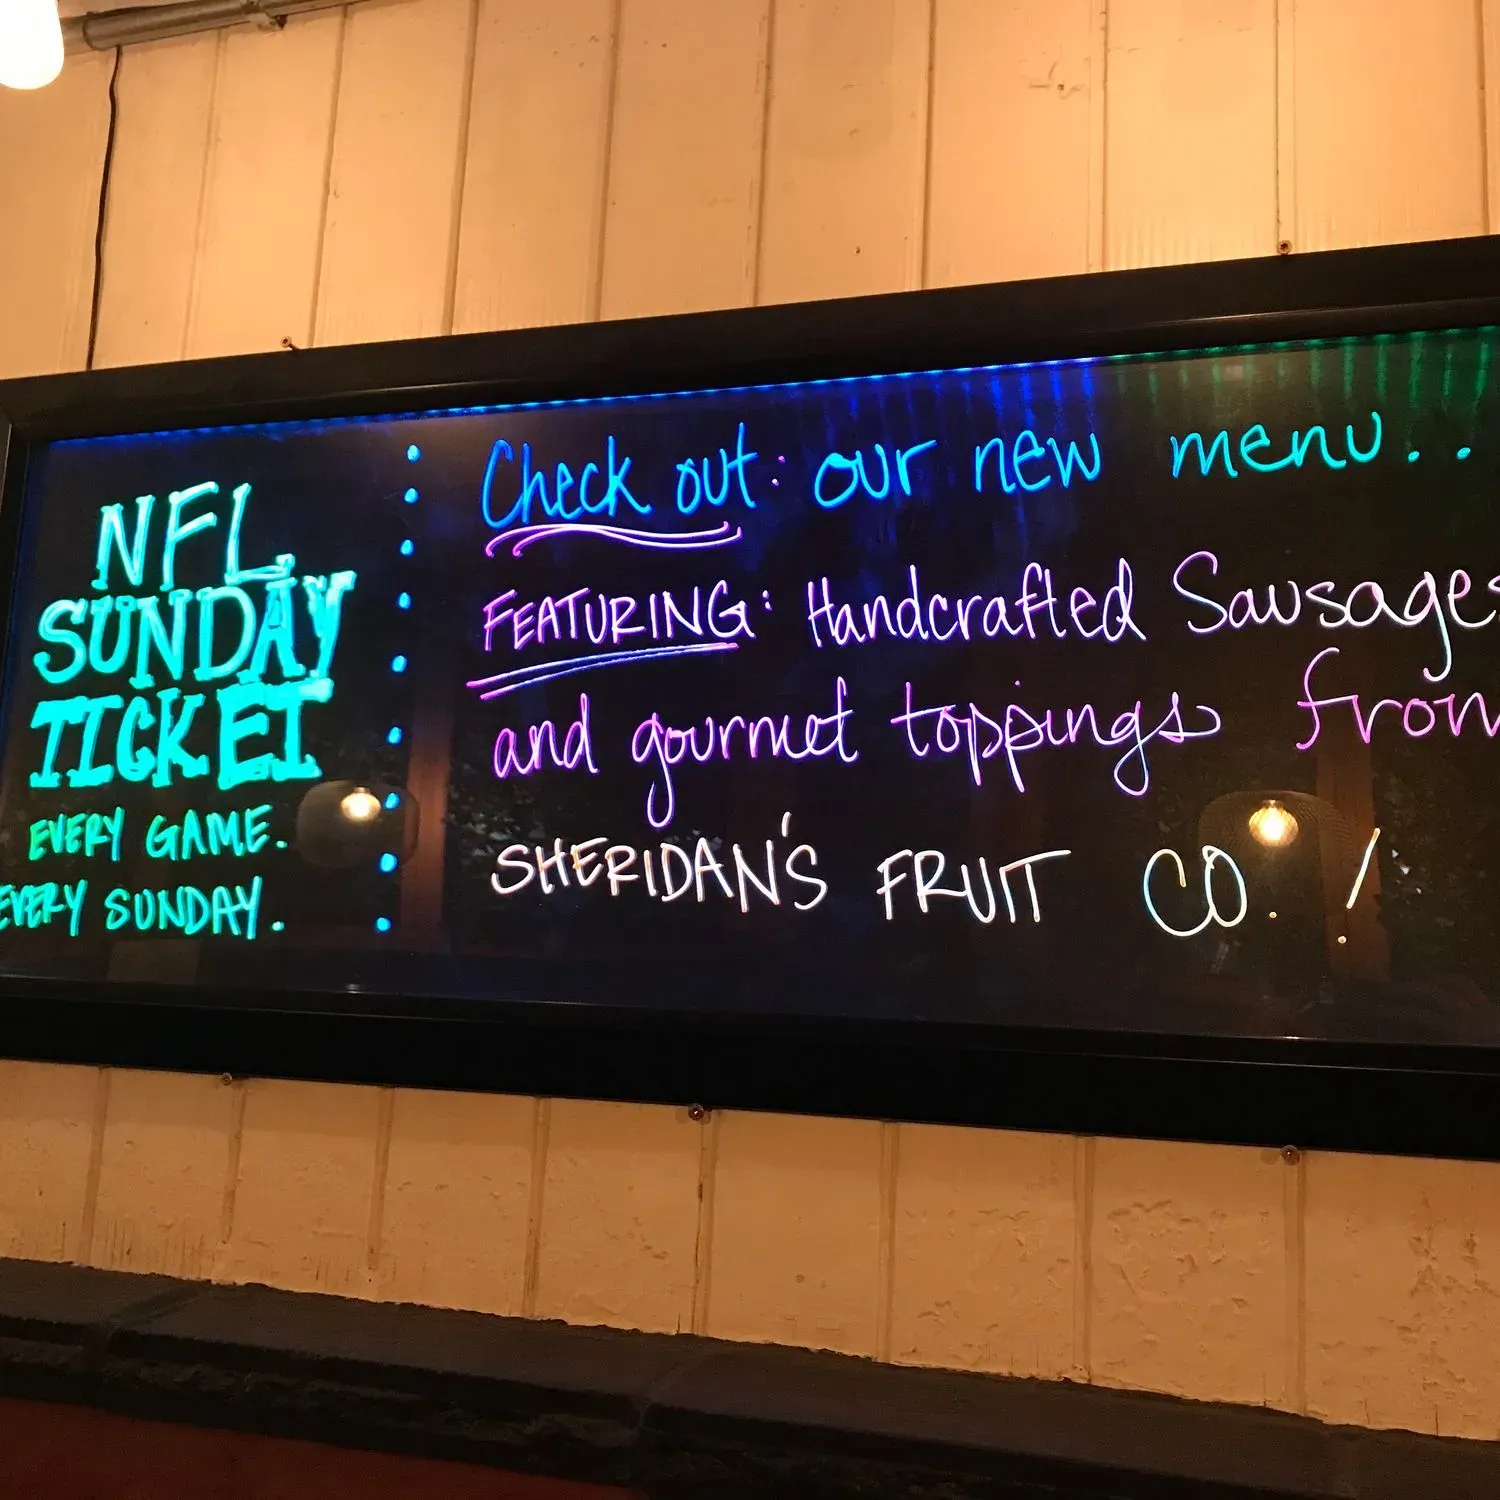 NFL
SUNDAY
TICKET
EVERY GAME.
EVERY SUNDAY.
Check out: our new menu..
FEATURING: Handcrafted Sausages
and gourmet toppings from
SHERIDAN'S FRUIT CO.!